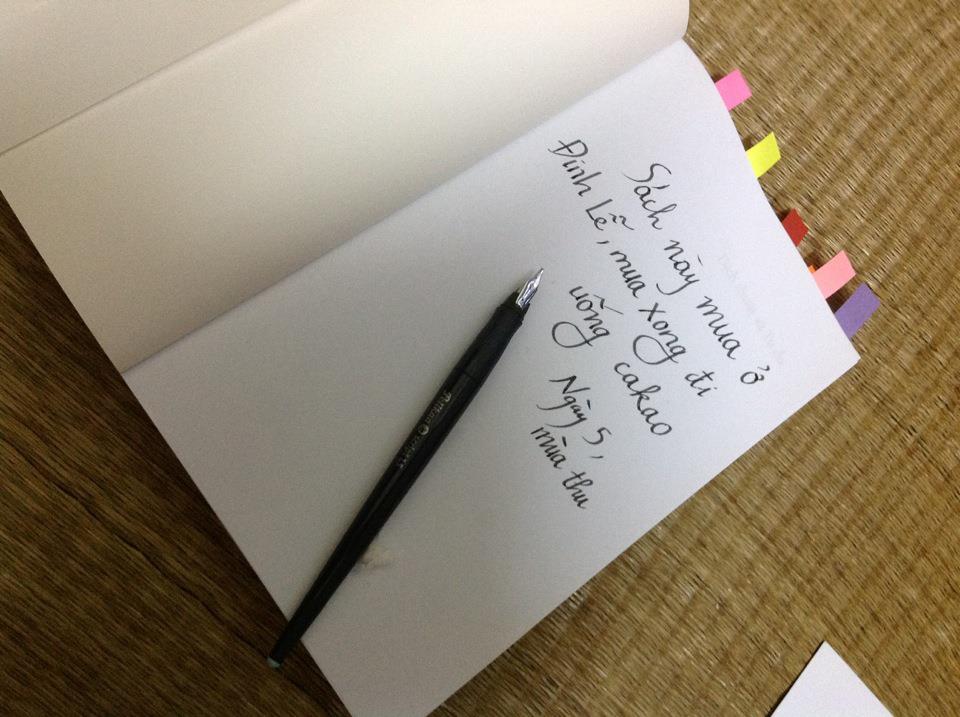 Sách này mua ở
Đinh Lễ, mua xong đi
uống cakao
Ngày 5,
mùa thu